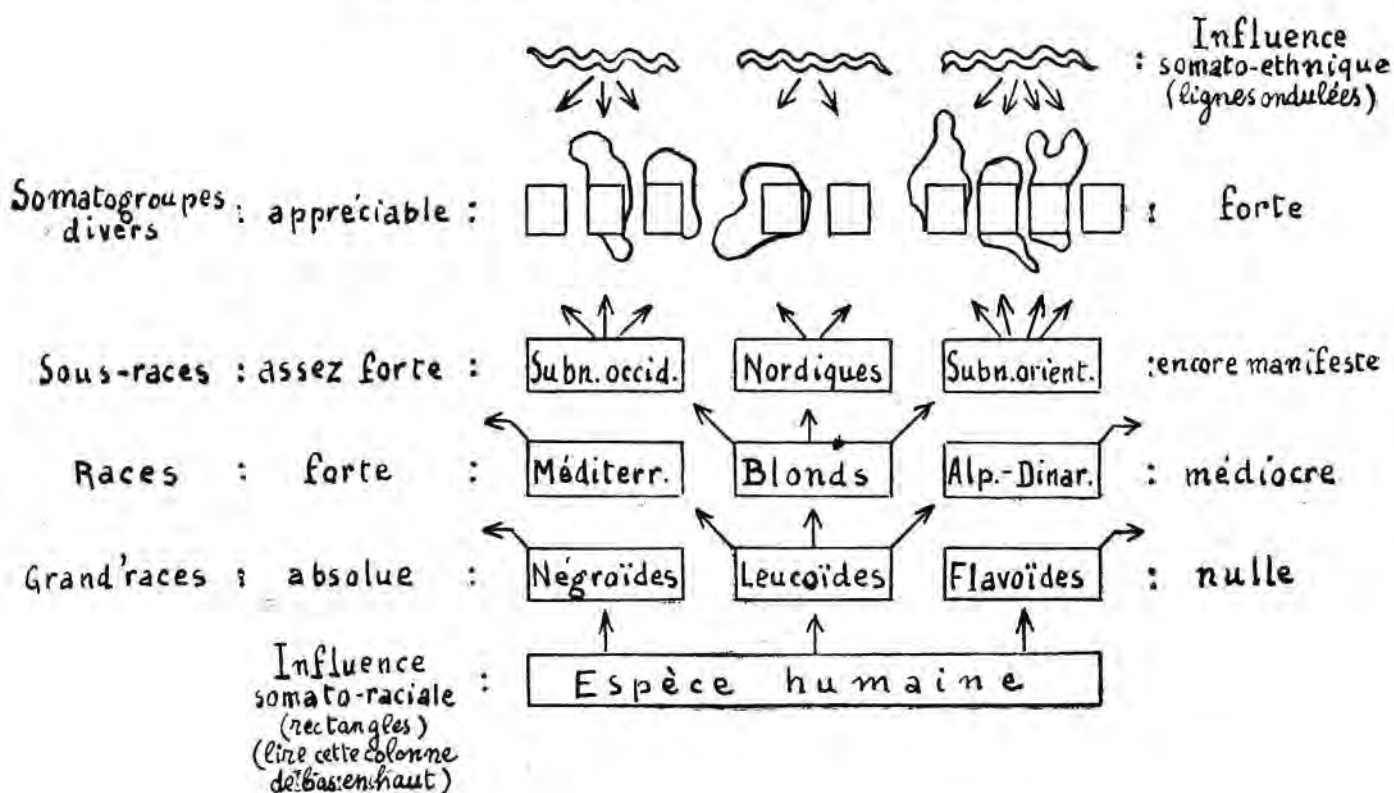 Influence
: somato-ethnique
(lignes ondulées)
Somatogroupes
divers : appréciable : : forte
Sous-races : assez forte : Subn. occid. Nordiques Subn. orient. : encore manifeste
Races : forte : Méditerr. Blonds Alp.-Dinar. : médiocre
Grand'races : absolue : Négroïdes Leucoïdes Flavoïdes : nulle
Influence
somato-raciale : Espèce humaine
(rectangles)
(lire cette colonne
de bas en haut)